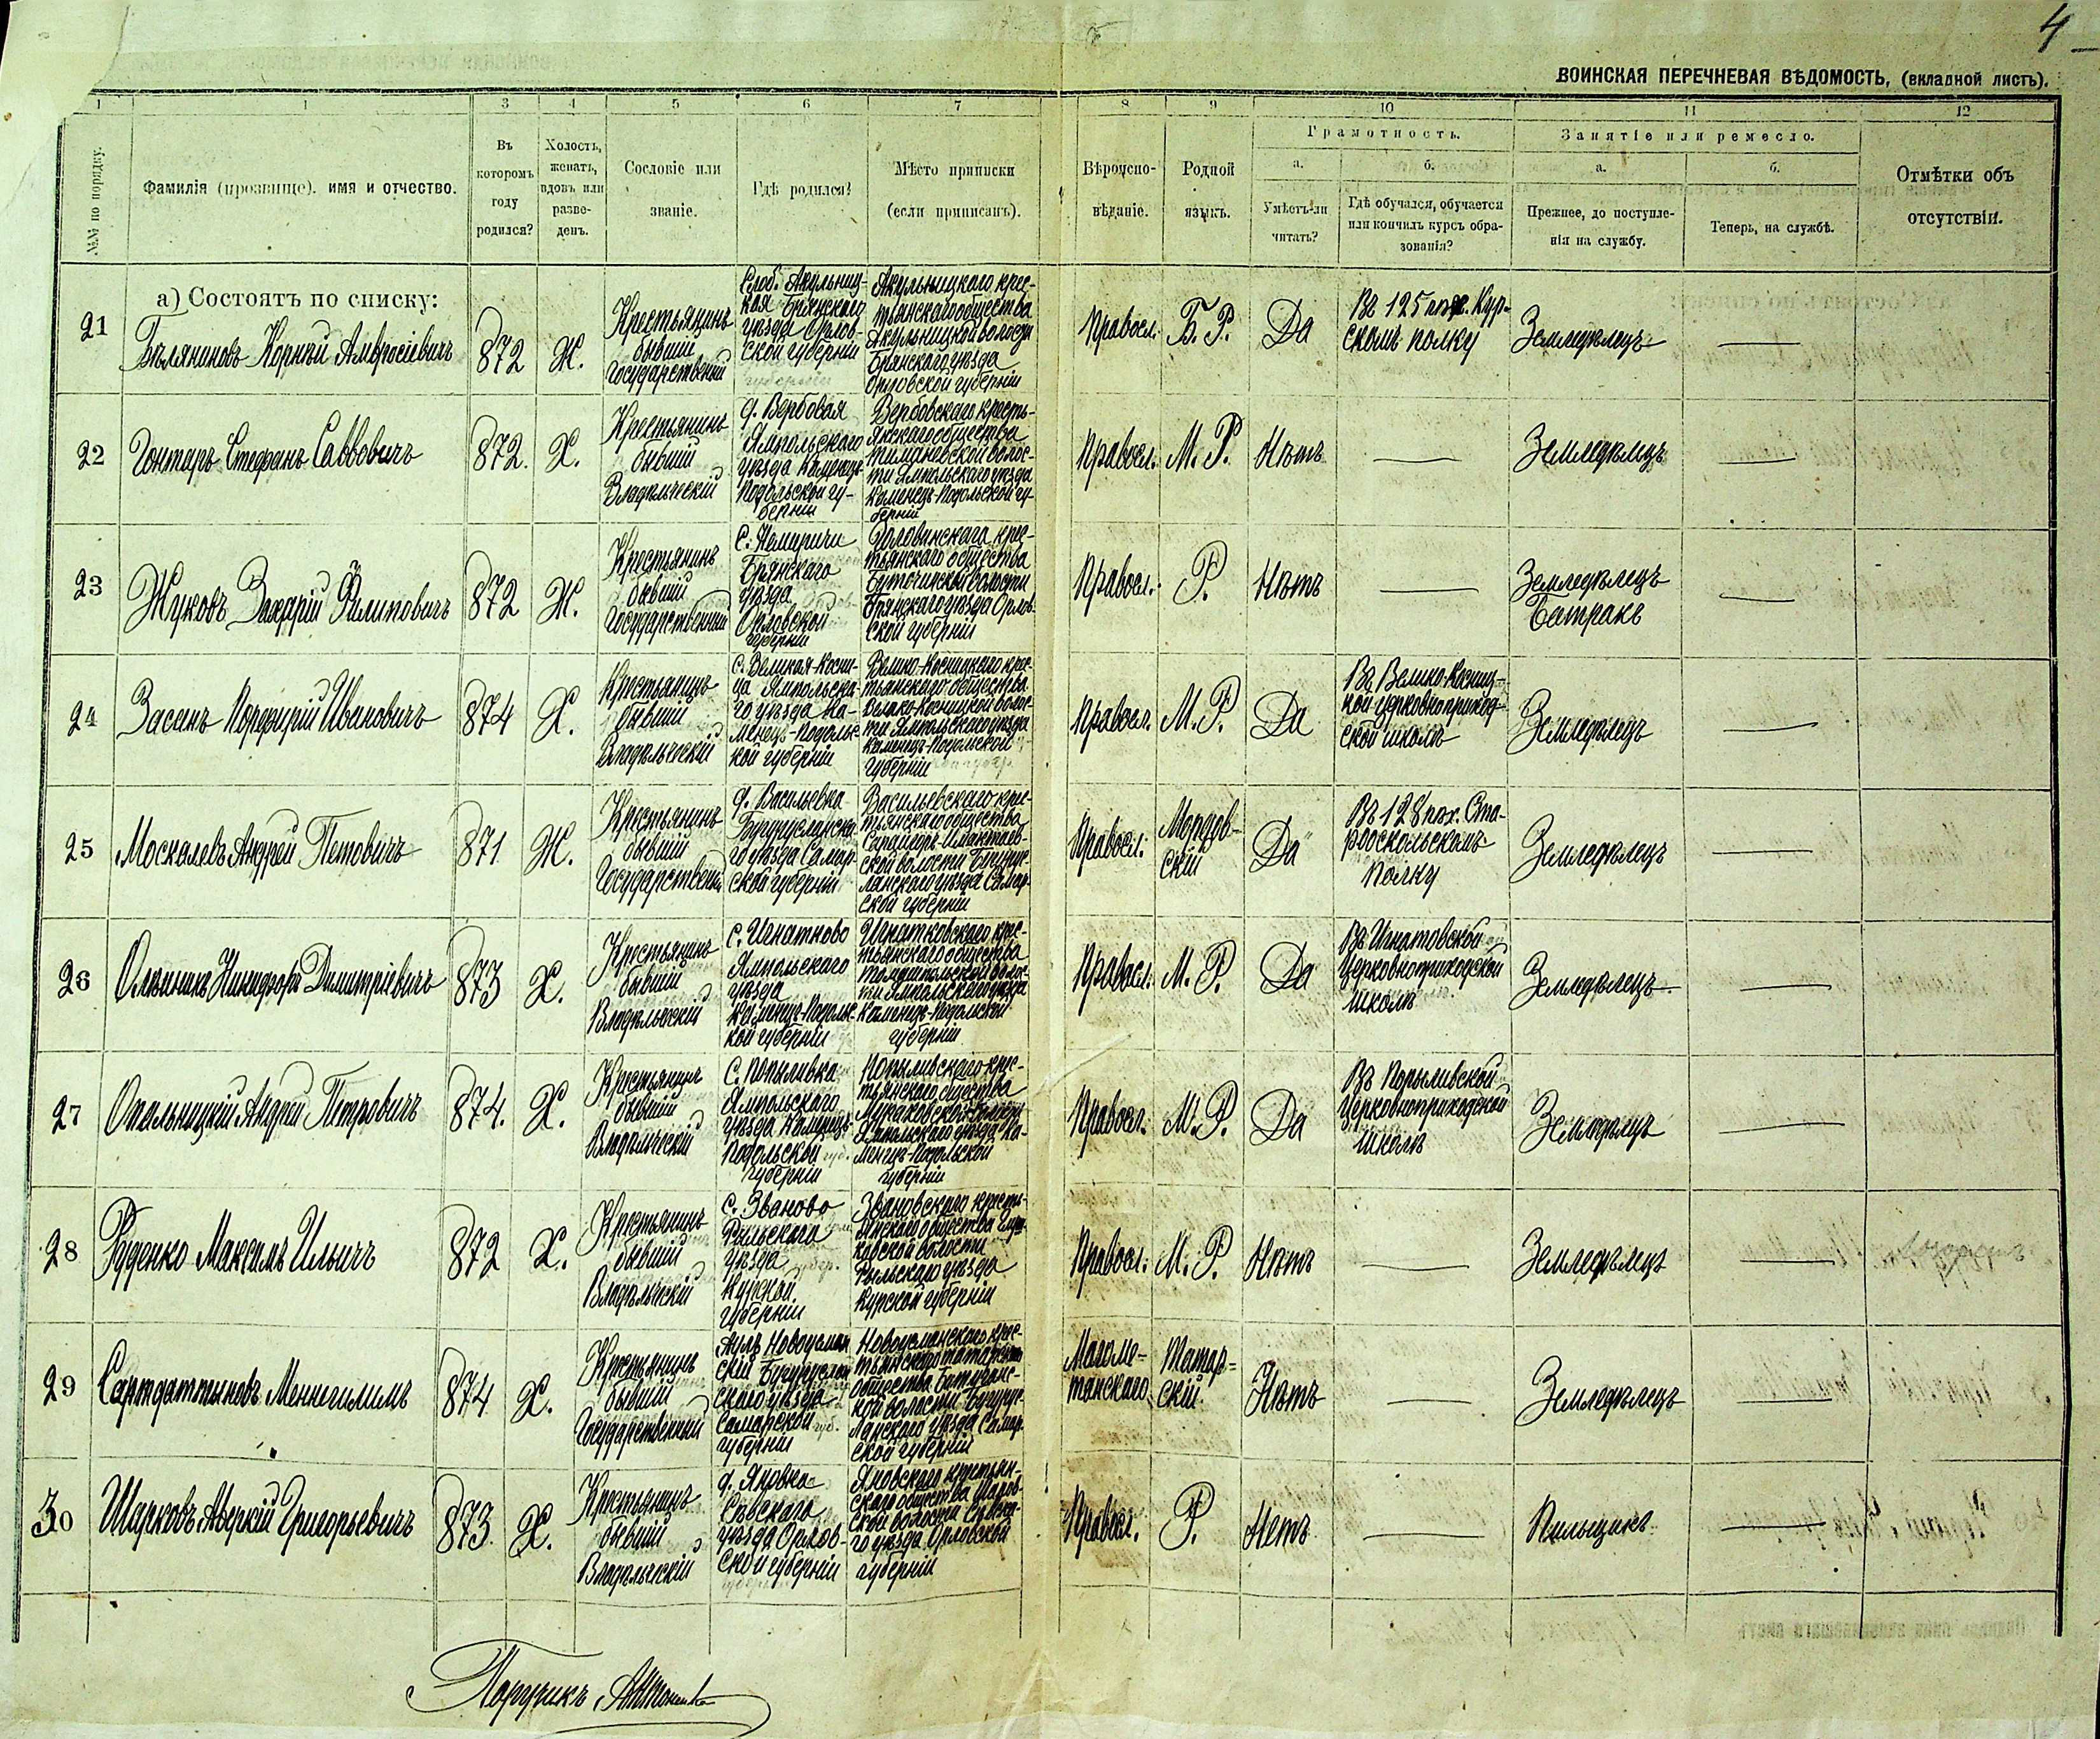 4
ВОИНСКАЯ ПЕРЕЧНЕВАЯ ВѢДОМОСТЬ, (вкладной листъ).
1 1 3 4 5 6 7 8 9 10 11 12
№№ по порядку.
Фамилія (прозвище), имя и отчество.
Въ которомъ году родился?
Холостъ, женатъ, вдовъ или разведенъ.
Сословіе или званіе.
Гдѣ родился?
Мѣсто приписки (если приписанъ).
Вѣроисповѣданіе.
Родной языкъ.
Грамотность.
а. Умѣетъ-ли читать?
б. Гдѣ обучался, обучается или кончилъ курсъ образованія?
Занятіе или ремесло.
а. Прежнее, до поступленія на службу.
б. Теперь, на службѣ.
Отмѣтки объ отсутствіи.
а) Состоятъ по списку:
21 Бѣляниновъ Корнѣй Амвросіевичъ 872 Ж. Крестьянинъ бывшій Государственный Слоб. Акульницкая Брянскаго уѣзда Орловской губерніи Акульницкаго крестьянскаго общества Акульницкой волости Брянскаго уѣзда Орловской губерніи Правосл. Б. Р. Да Въ 125 пѣх. Курскомъ полку Земледѣлецъ —
22 Гонтарь Стефанъ Саввовичъ 872. Х. Крестьянинъ бывшій Владѣльческій д. Вербовая Ямпольского уѣзда Каменец Подольской губерніи Вербовскаго крестьянскаго общества тимановской волости Ямпольскаго уѣзда Каменецъ-Подольской губерніи Правосл. М. Р. Нѣтъ — Земледѣлецъ —
23 Жуковъ Захарій Филиповичъ 872 Ж. Крестьянинъ бывшій Государственный С. Немеричи Брянскаго уѣзда Орловской губерніи крестьянскаго общества волости Брянскаго уѣзда Орловской губерніи Правосл. Р. Нѣтъ — Земледѣлецъ Батракъ —
24 Засанъ Порфирій Ивановичъ 874 Х. Крестьянинъ бывшій Владѣльческій с. Великая-Косница Ямпольскаго уѣзда Каменецъ-Подольской губерніи Велико-Косницкаго крестьянскаго общества Велико-Косницкой волости Ямпольскаго уѣзда Каменецъ-Подольской губерніи Правосл. М. Р. Да Въ Велико-Косницкой церковноприходской школѣ Земледѣлецъ —
25 Москалевъ Андрей Петовичъ 871 Ж. Крестьянинъ бывшій Государственн д. Васильевка Бугурусланскаго уѣзда Самарской губерніи Васильевскаго крестьянскаго общества волости Бугурусланскаго уѣзда Самарской губерніи Правосл. Мордовскій Да Въ 128 пѣх. Старооскольскомъ полку Земледѣлецъ —
26 Олѣйникъ Никифоръ Димитріевичъ 873 Х. Крестьянинъ бывшій Владѣльческій с. Игнатково Ямпольскаго уѣзда Каменецъ-Подольской губерніи Игнатковскаго крестьянскаго общества Томашпольской волости Ямпольскаго уѣзда Каменецъ-Подольской губерніи Правосл. М. Р. Да Въ Игнатовской церковноприходской школѣ Земледѣлецъ —
27 Опальницкій Андрей Петровичъ 874. Х. Крестьянинъ бывшій Владѣльческій С. Попыливка Ямпольского уѣзда Каменецъ Подольской губерніи Попыливскаго крестьянскаго общества волости Ямпольскаго уѣзда Каменецъ-Подольской губерніи Правосл. М. Р. Да Въ Попыливской церковноприходской школѣ Земледѣлецъ —
28 Руденко Максимъ Ильичъ 872 Х. Крестьянинъ бывшій Владѣльческій с. Званово Рыльскаго уѣзда Курской губерніи Звановскаго крестьянскаго общества волости Рыльскаго уѣзда Курской губерніи Правосл. М. Р. Нѣтъ — Земледѣлецъ —
29 Сартдаттыновъ Меннегилимъ 874 Х. Крестьянинъ бывшій Государственный Аулъ Новоусманскій Бугурусланскаго уѣзда Самарской губерніи Новоусманскаго крестьянскаго татарскаго общества волости Бугурусланскаго уѣзда Самарской губерніи Магометанскаго Татарскій Нѣтъ — Земледѣлецъ —
30 Шарковъ Аверкій Григорьевичъ 873. Х. Крестьянинъ бывшій Владѣльческій д. Яновка Сѣвскаго уѣзда Орловской губерніи Яновскаго крестьянскаго общества волости Сѣвскаго уѣзда Орловской губерніи Правосл. Р. Нетъ — Пильщикъ —
Поручикъ